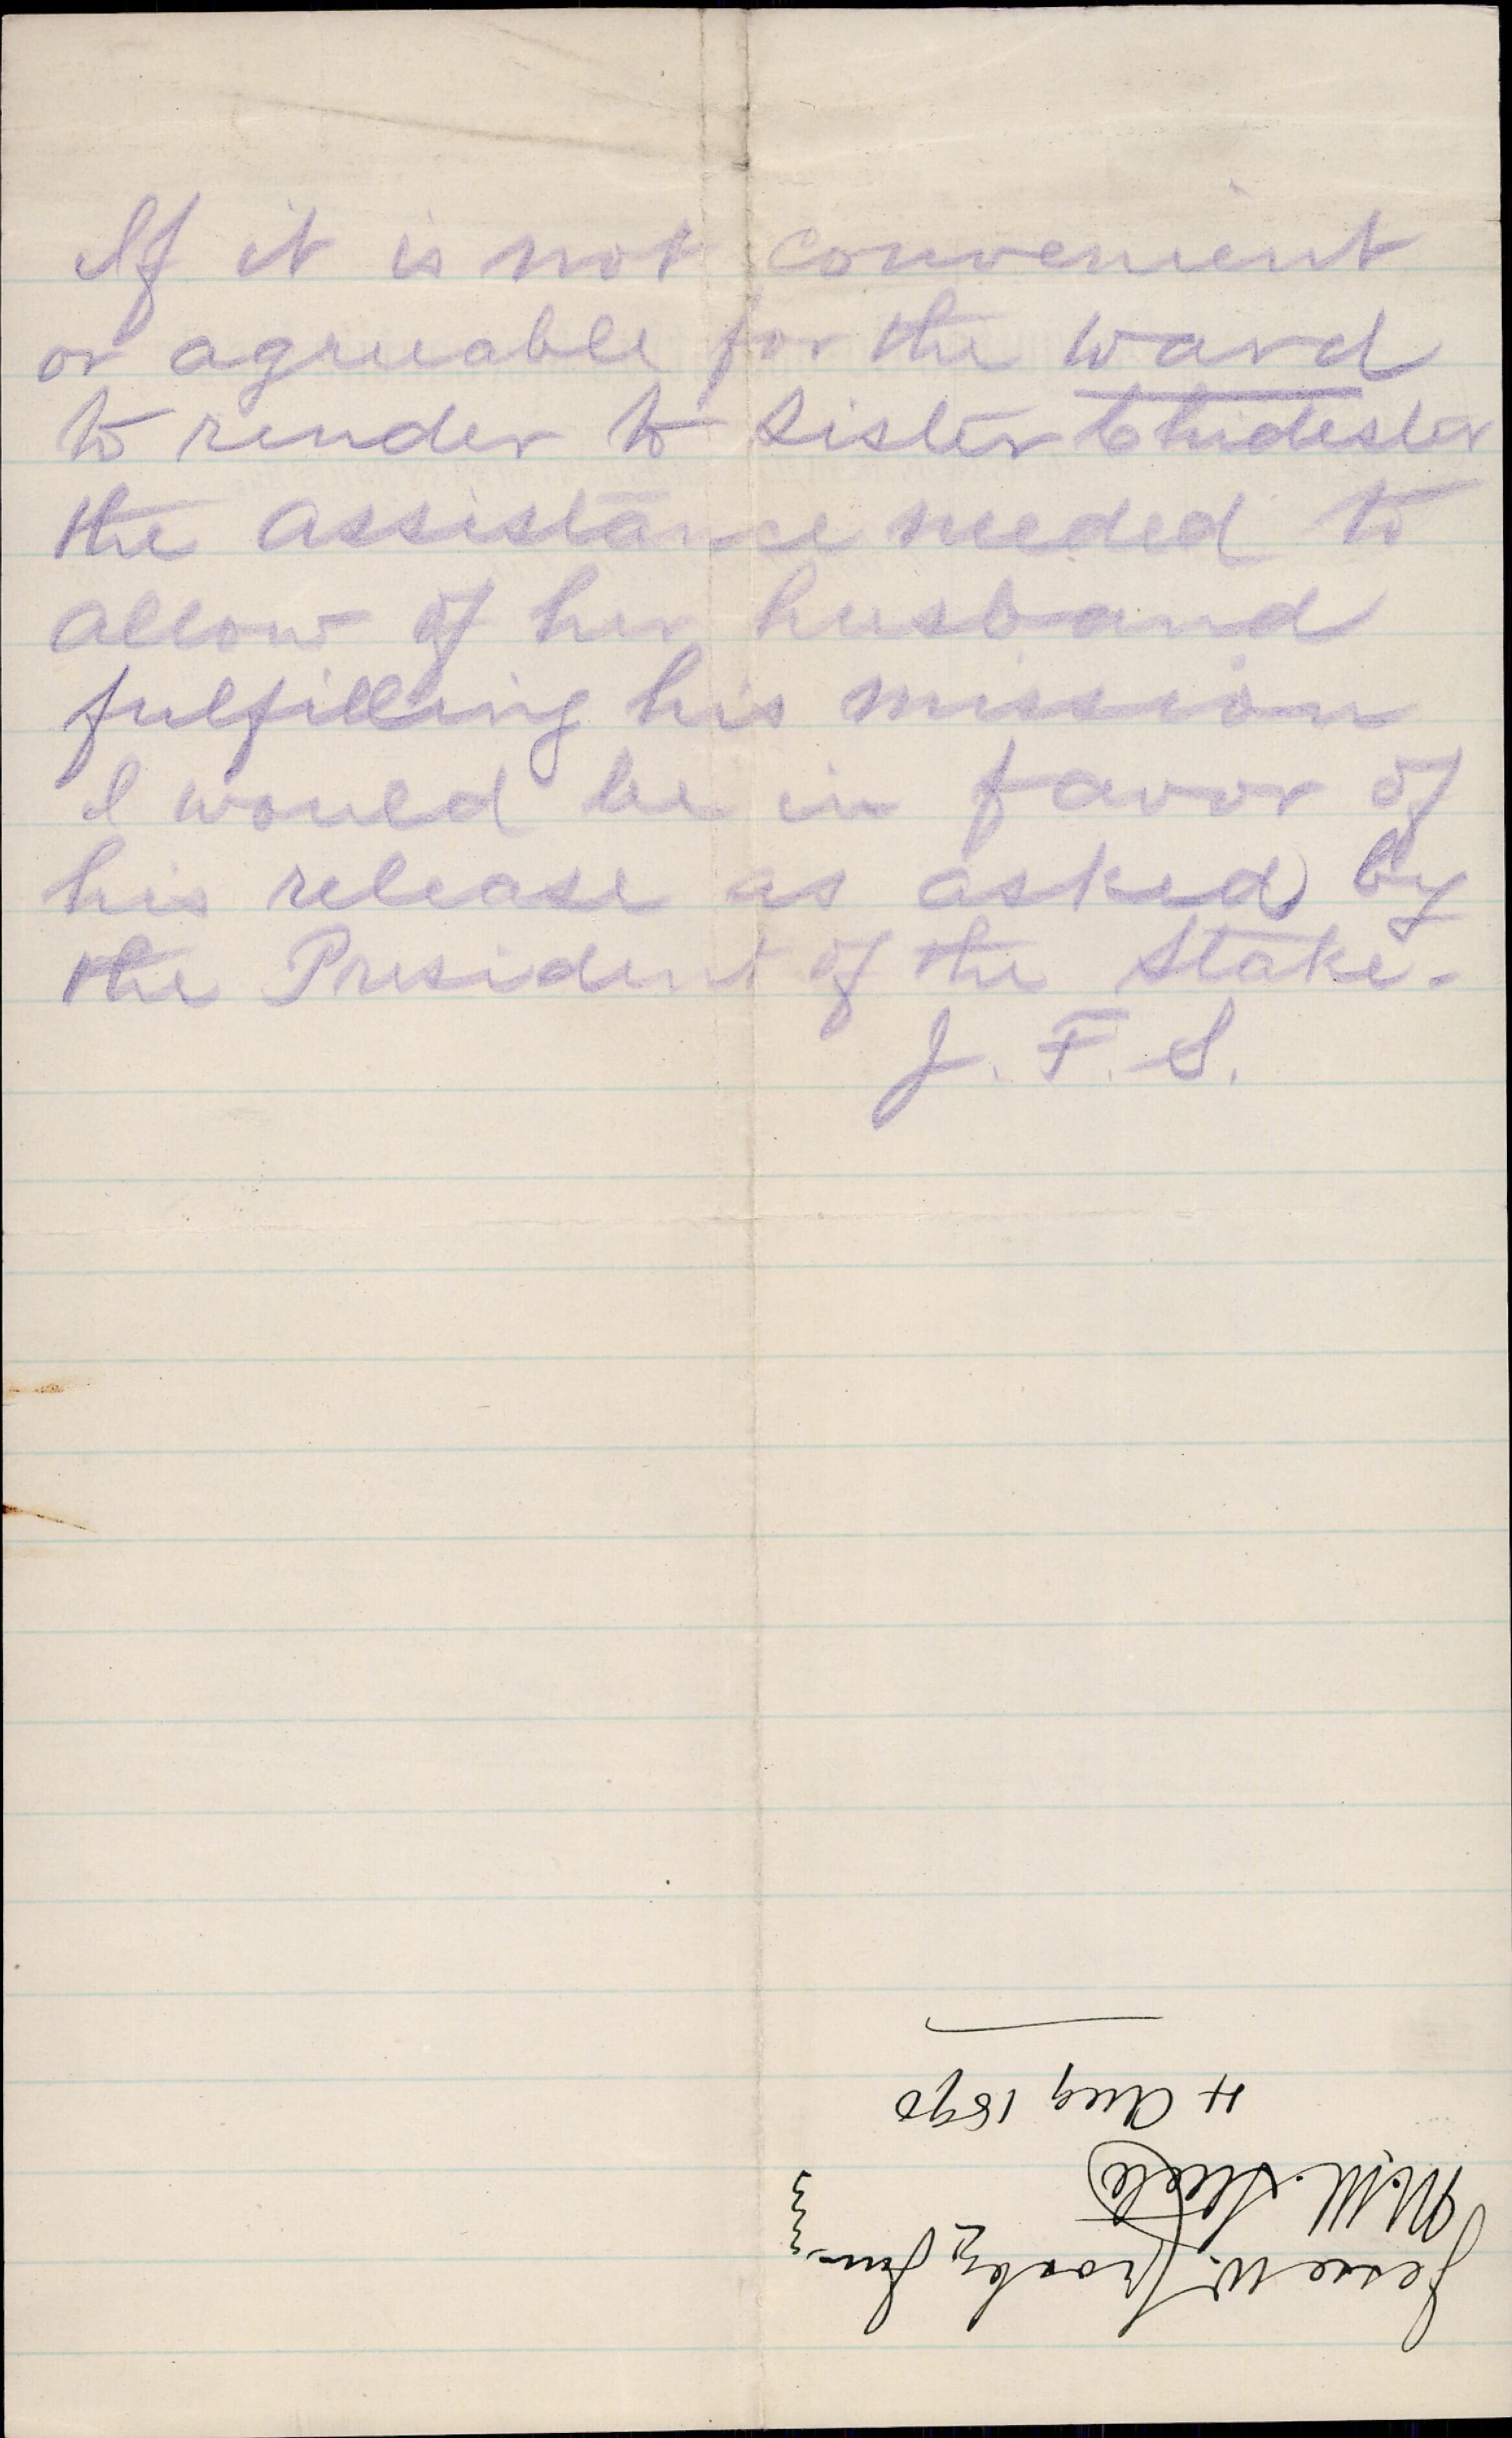 If it is not convenient
or agreeable for the ward
to render to Sister Chidester
the assistance needed to
allow of her husband
fulfilling his mission
I would be in favor of
his release as asked by
the President of the Stake.
J. F. S.
Jesse W. Crosby Jun
M. M. Steele
4 Aug 1890